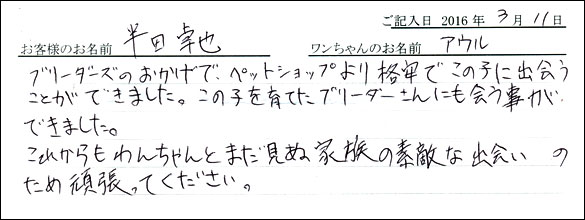 ご記入日 2016 年 3 月 11 日
お客様のお名前 半田 幸也 ワンちゃんのお名前 アウル
ブリーダーズのおかげで、ペットショップより格安でこの子に出会う
ことができました。この子を育てたブリーダーさんにも会う事が
できました。
これからもわんちゃんとまだ見ぬ家族の素敵な出会い の
ため頑張ってください。